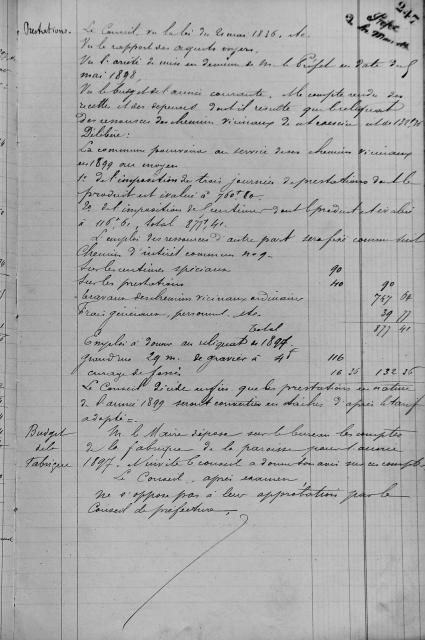 247
Prestations. Le Conseil, vu la loi du 20 mai 1836, etc
Vu le rapport des agents voyers,
Vu l'arrêté de mise en demeure de M. le Préfet en date du 5
mai 1898,
Vu le budget de l'année courante, le compte rendu des
recettes et des dépenses dont il résulte que le reliquat
des ressources des chemins vicinaux de cet exercice est de 132,36
Délibère:
La commune pourvoira au service de ses chemins vicinaux
en 1899 au moyen
1° de l'imposition de trois journées de prestations dont le
produit est évalué à 760f 80.
2° de l'imposition de centimes dont le produit est évalué
à 116f,61, total 877f,41.
L'emploi des ressources d'autre part sera fixé comme suit
Chemin d'intérêt commun n° 9.
Sur les centimes spéciaux 90
Sur les prestations 90
Travaux des chemins vicinaux ordinaires 747 64
Frais généraux, personnel, etc. 39 77
Total 877 41
Emploi à donner au reliquat de 1897
grand'rue 29 m. de gravier à 4f 116
curage de fossés 16 36 132 36
Le Conseil décide enfin que les prestations en nature
de l'année 1899 seront converties en tâches d'après le tarif
adopté.
Budget de la Fabrique
M. le Maire dépose sur le bureau les comptes
de la fabrique de la paroisse pour l'année
1897. Il invite le conseil à donner son avis sur ces comptes.
Le Conseil, après examen,
ne s'oppose pas à leur approbation par le
Conseil de préfecture.